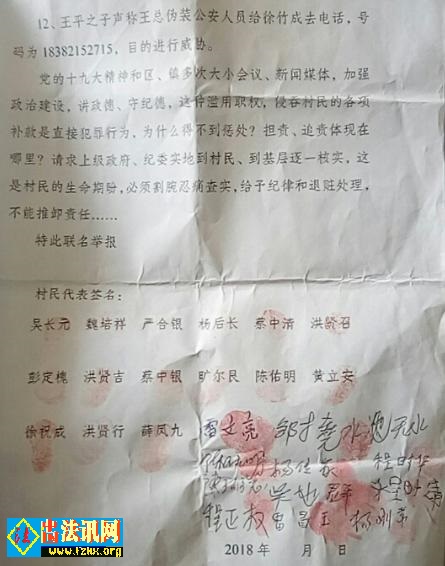 12、王平之子声称王总伪装公安人员给徐竹成去电话，号
码为 18382152715，目的进行威胁。
党的十九大精神和区、镇多次大小会议、新闻媒体，加强
政治建设，讲政德、守纪德，这种滥用职权，侵吞村民的各项
补款是直接犯罪行为，为什么得不到惩处？担责、追责体现在
哪里？请求上级政府、纪委实地到村民、到基层逐一核实，这
是村民的生命期盼，必须割腕忍痛查实，给予纪律和退赃处理，
不能推卸责任……
特此联名举报
村民代表签名：
吴长元 魏培祥 严合银 杨后长 蔡中清 洪贤召
彭定槐 洪贤吉 蔡中银 旷尔民 陈佑明 黄立安
徐祝成 洪贤行 薛凤九
程正权 曹昌玉
2018 年 月 日
法 出法讯网
www.fzkx.org